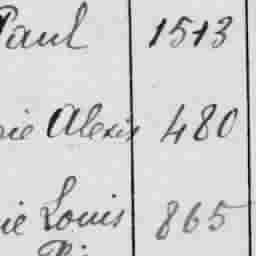 Paul 1513
rie Alexis 480
ie Louis 865